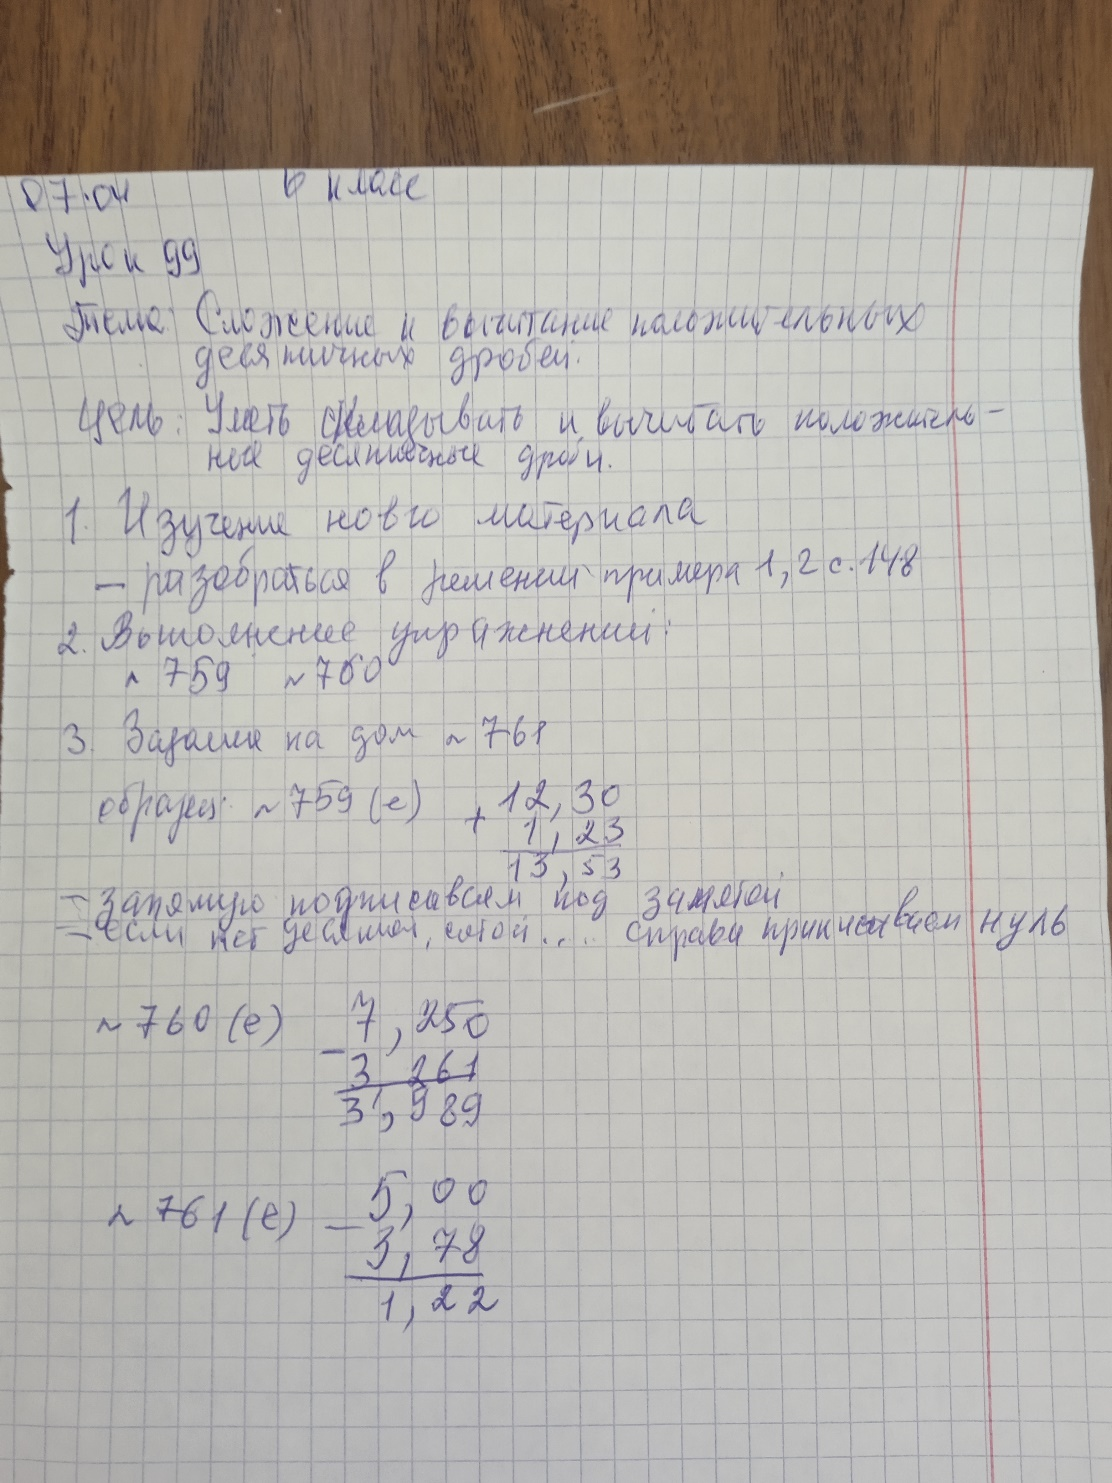 07.04 6 класс
Урок 99
Тема: Сложение и вычитание положительных
десятичных дробей.
Цель: Уметь складывать и вычитать положитель-
ные десятичные дроби.
1. Изучение нового материала
– разобраться в решении примера 1, 2 с. 148
2. Выполнение упражнений:
~ 759 ~ 760
3. Задание на дом ~ 761
образец: ~ 759 (е) + 12,30
1,23
13,53
– запятую подписываем под запятой
– если нет десятой, сотой .... справа приписываем нуль
~ 760 (е) 7,250
– 3 261
3,989
~ 761 (е) – 5,00
3,78
1,22